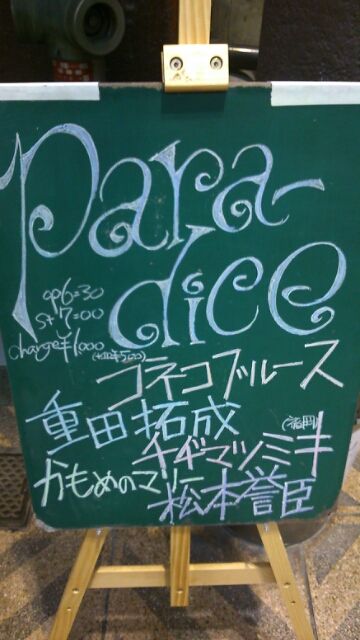 para-
dice
op6=30
st7=00
charge¥1,000
(+1D¥500)
コネコブルース
重田拓成
(福岡)
チヂマツミキ
かもめのマリー
松本誉臣